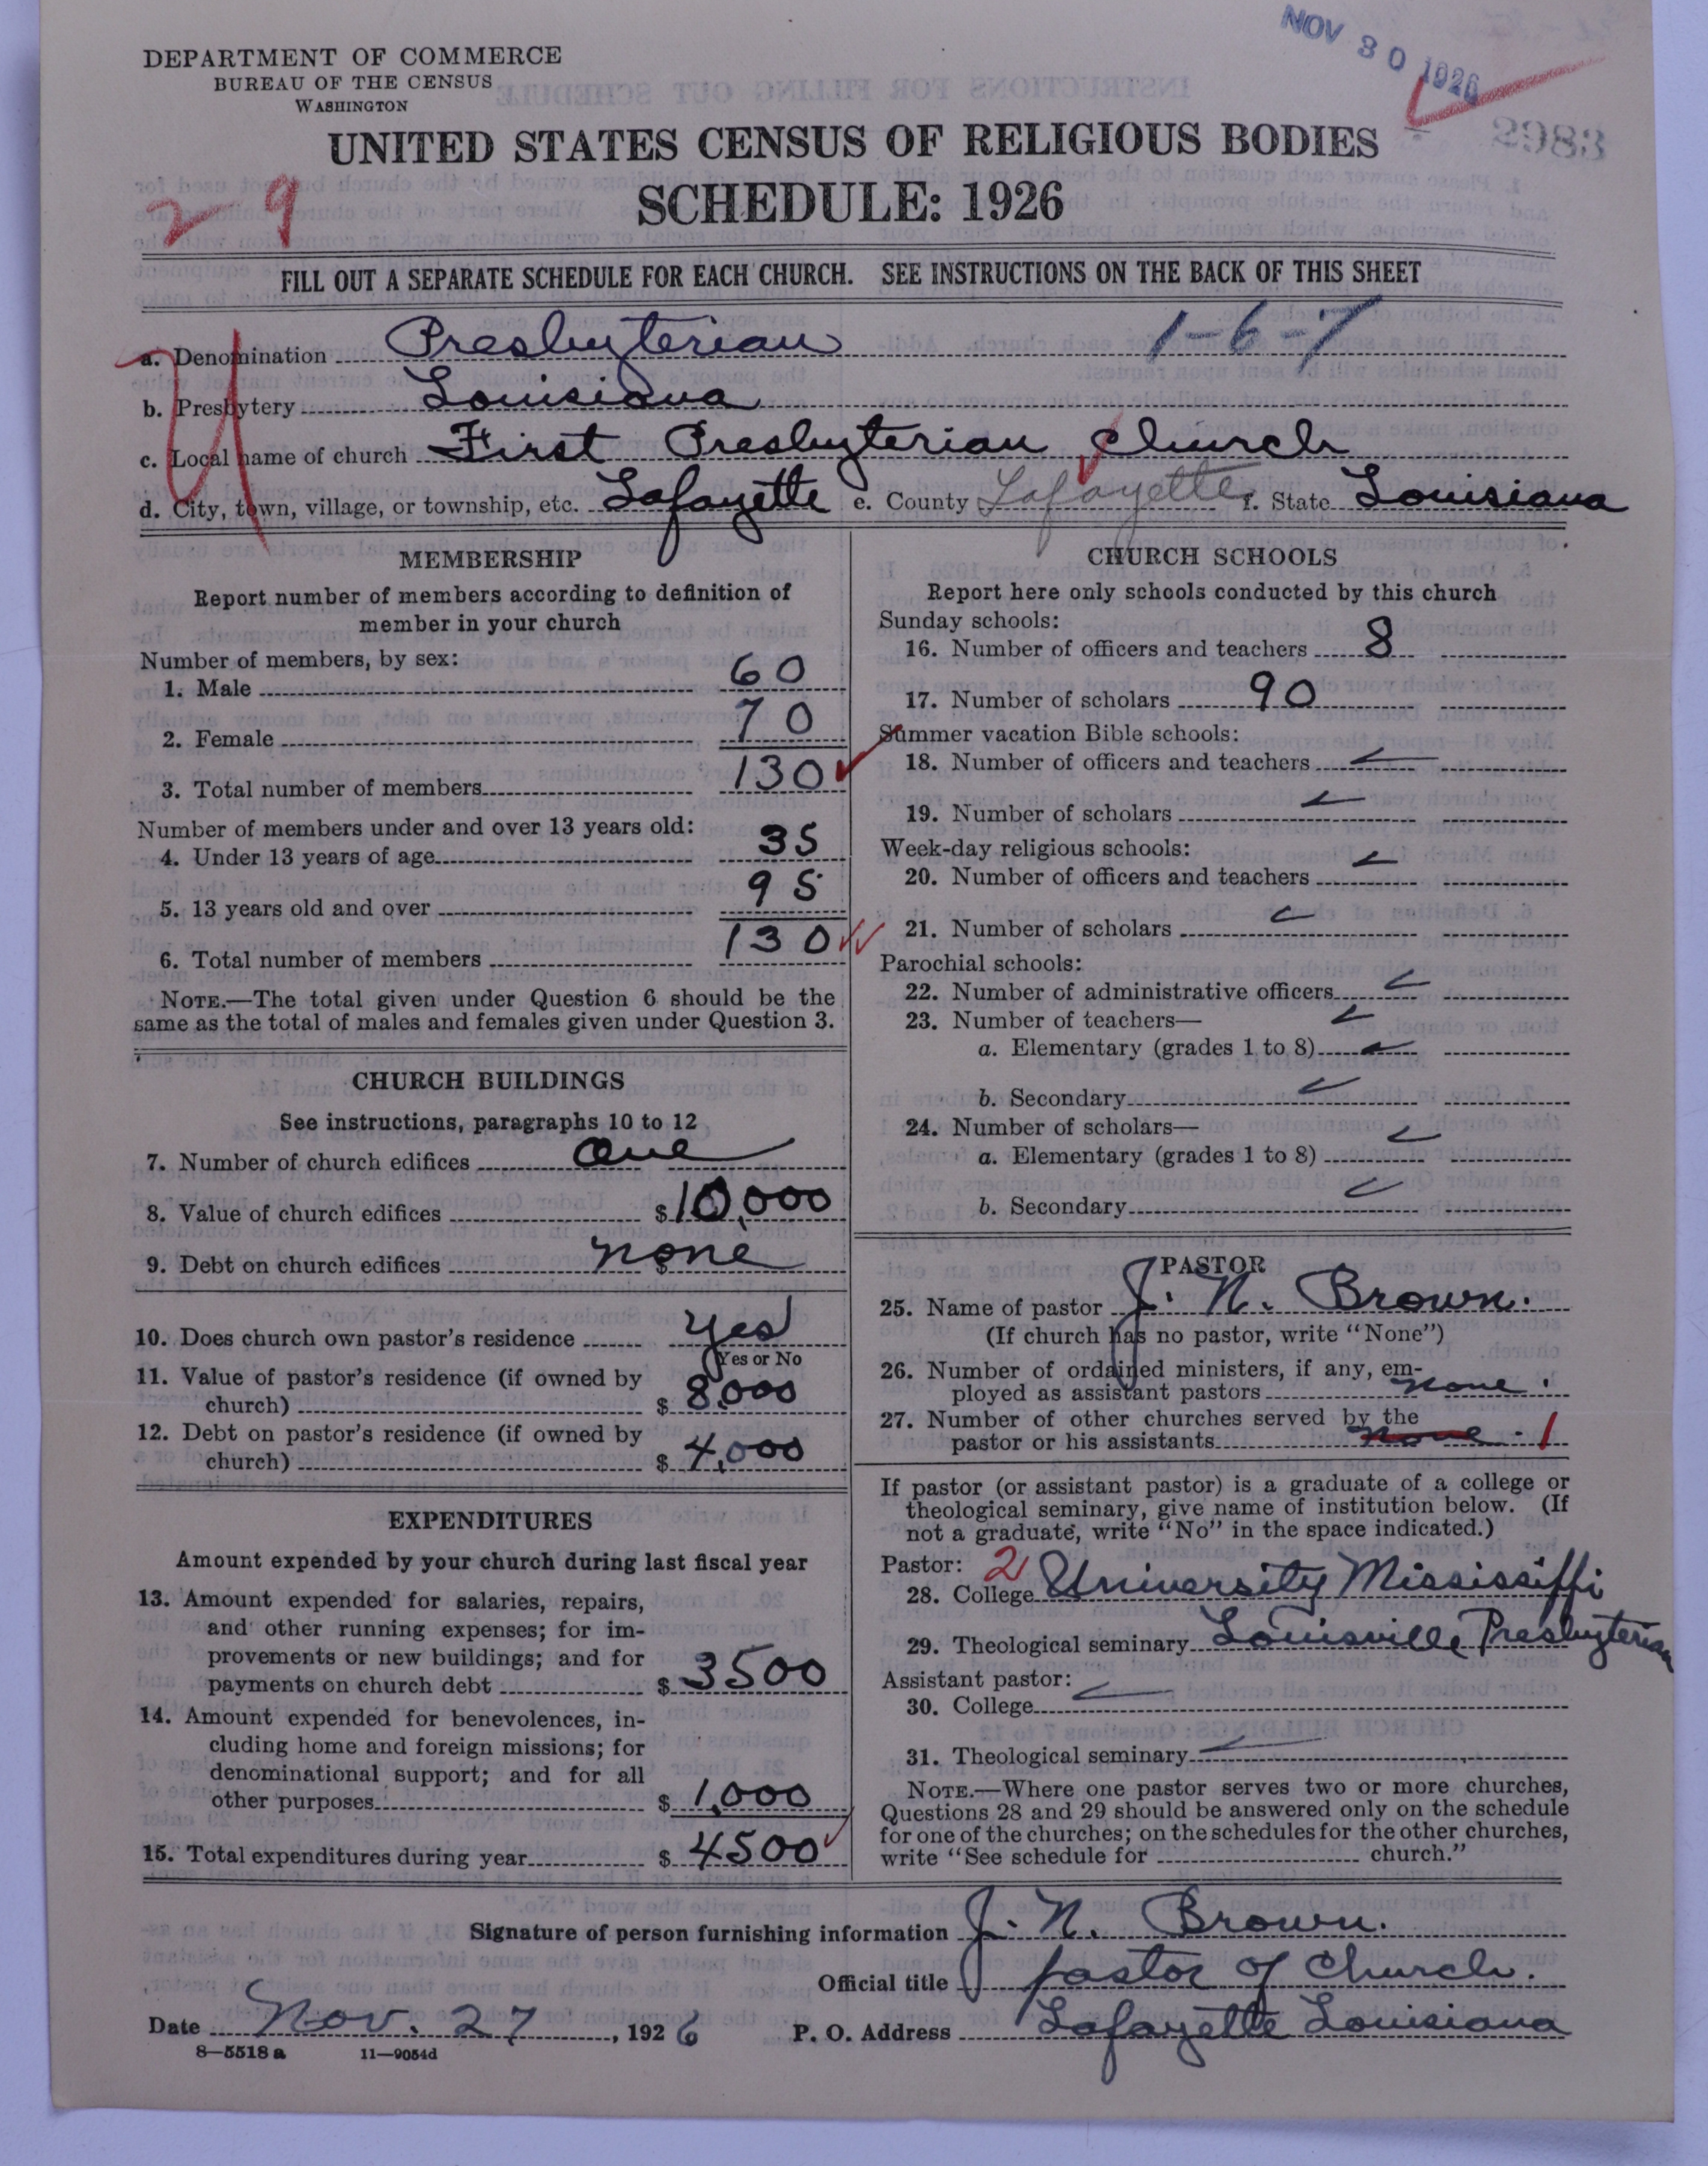 NOV 30 1926
DEPARTMENT OF COMMERCE
BUREAU OF THE CENSUS
WASHINGTON
2983
UNITED STATES CENSUS OF RELIGIOUS BODIES
SCHEDULE: 1926
2 9
FILL OUT A SEPARATE SCHEDULE FOR EACH CHURCH. SEE INSTRUCTIONS ON THE BACK OF THIS SHEET
1-6-7
a. Denomination Presbyterian
b. Presbytery Louisiana
c. Local name of church First Presbyterian Church
d. City, town, village, or township, etc. Lafayette e. County Lafayette f. State Louisiana
U
MEMBERSHIP
Report number of members according to definition of
member in your church
Number of members, by sex:
1. Male 60
2. Female 70
3. Total number of members 130
Number of members under and over 13 years old:
4. Under 13 years of age 35
5. 13 years old and over 95
6. Total number of members 130
NOTE.—The total given under Question 6 should be the
same as the total of males and females given under Question 3.
CHURCH BUILDINGS
See instructions, paragraphs 10 to 12
7. Number of church edifices one
8. Value of church edifices $ 10,000
9. Debt on church edifices $ none
10. Does church own pastor's residence yes
Yes or No
11. Value of pastor's residence (if owned by
church) $ 8,000
12. Debt on pastor's residence (if owned by
church) $ 4,000
EXPENDITURES
Amount expended by your church during last fiscal year
13. Amount expended for salaries, repairs,
and other running expenses; for im-
provements or new buildings; and for
payments on church debt $ 3500
14. Amount expended for benevolences, in-
cluding home and foreign missions; for
denominational support; and for all
other purposes $ 1,000
15. Total expenditures during year $ 4500
CHURCH SCHOOLS
Report here only schools conducted by this church
Sunday schools:
16. Number of officers and teachers 8
17. Number of scholars 90
Summer vacation Bible schools:
18. Number of officers and teachers
19. Number of scholars
Week-day religious schools:
20. Number of officers and teachers
21. Number of scholars
Parochial schools:
22. Number of administrative officers
23. Number of teachers—
a. Elementary (grades 1 to 8)
b. Secondary
24. Number of scholars—
a. Elementary (grades 1 to 8)
b. Secondary
PASTOR
25. Name of pastor J. N. Brown.
(If church has no pastor, write "None")
26. Number of ordained ministers, if any, em-
ployed as assistant pastors none.
27. Number of other churches served by the
pastor or his assistants none. 1
If pastor (or assistant pastor) is a graduate of a college or
theological seminary, give name of institution below. (If
not a graduate, write "No" in the space indicated.)
Pastor: 2
28. College University Mississippi
29. Theological seminary Louisville Presbyterian
Assistant pastor:
30. College
31. Theological seminary
NOTE.—Where one pastor serves two or more churches,
Questions 28 and 29 should be answered only on the schedule
for one of the churches; on the schedules for the other churches,
write "See schedule for church."
Signature of person furnishing information J. N. Brown.
Official title pastor of Church.
Date Nov. 27, 1926 P. O. Address Lafayette Louisiana
8—5518 a 11—9054d